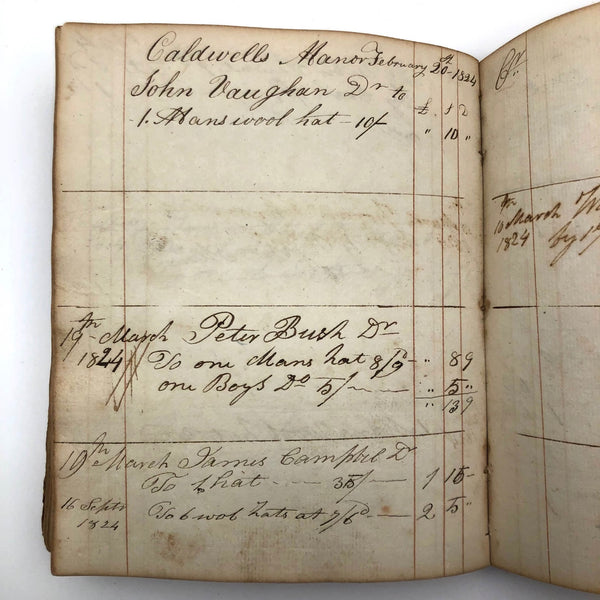 Caldwells Manor February 20th 1824
John Vaughan Dr to £ s d
1. Mans wool hat - 10/- " 10 "
19th March Peter Bush Dr
1824 To one Mans hat 8/9 - " 8 9
one Boys Do 5/- " 5 "
" 13 9
19th March James Campbel Dr
To 1 hat 35/- 1 15 -
16 Septr To 6 wool hats at 7/6d - 2 5 "
1824
Cr
10th March
1824 by